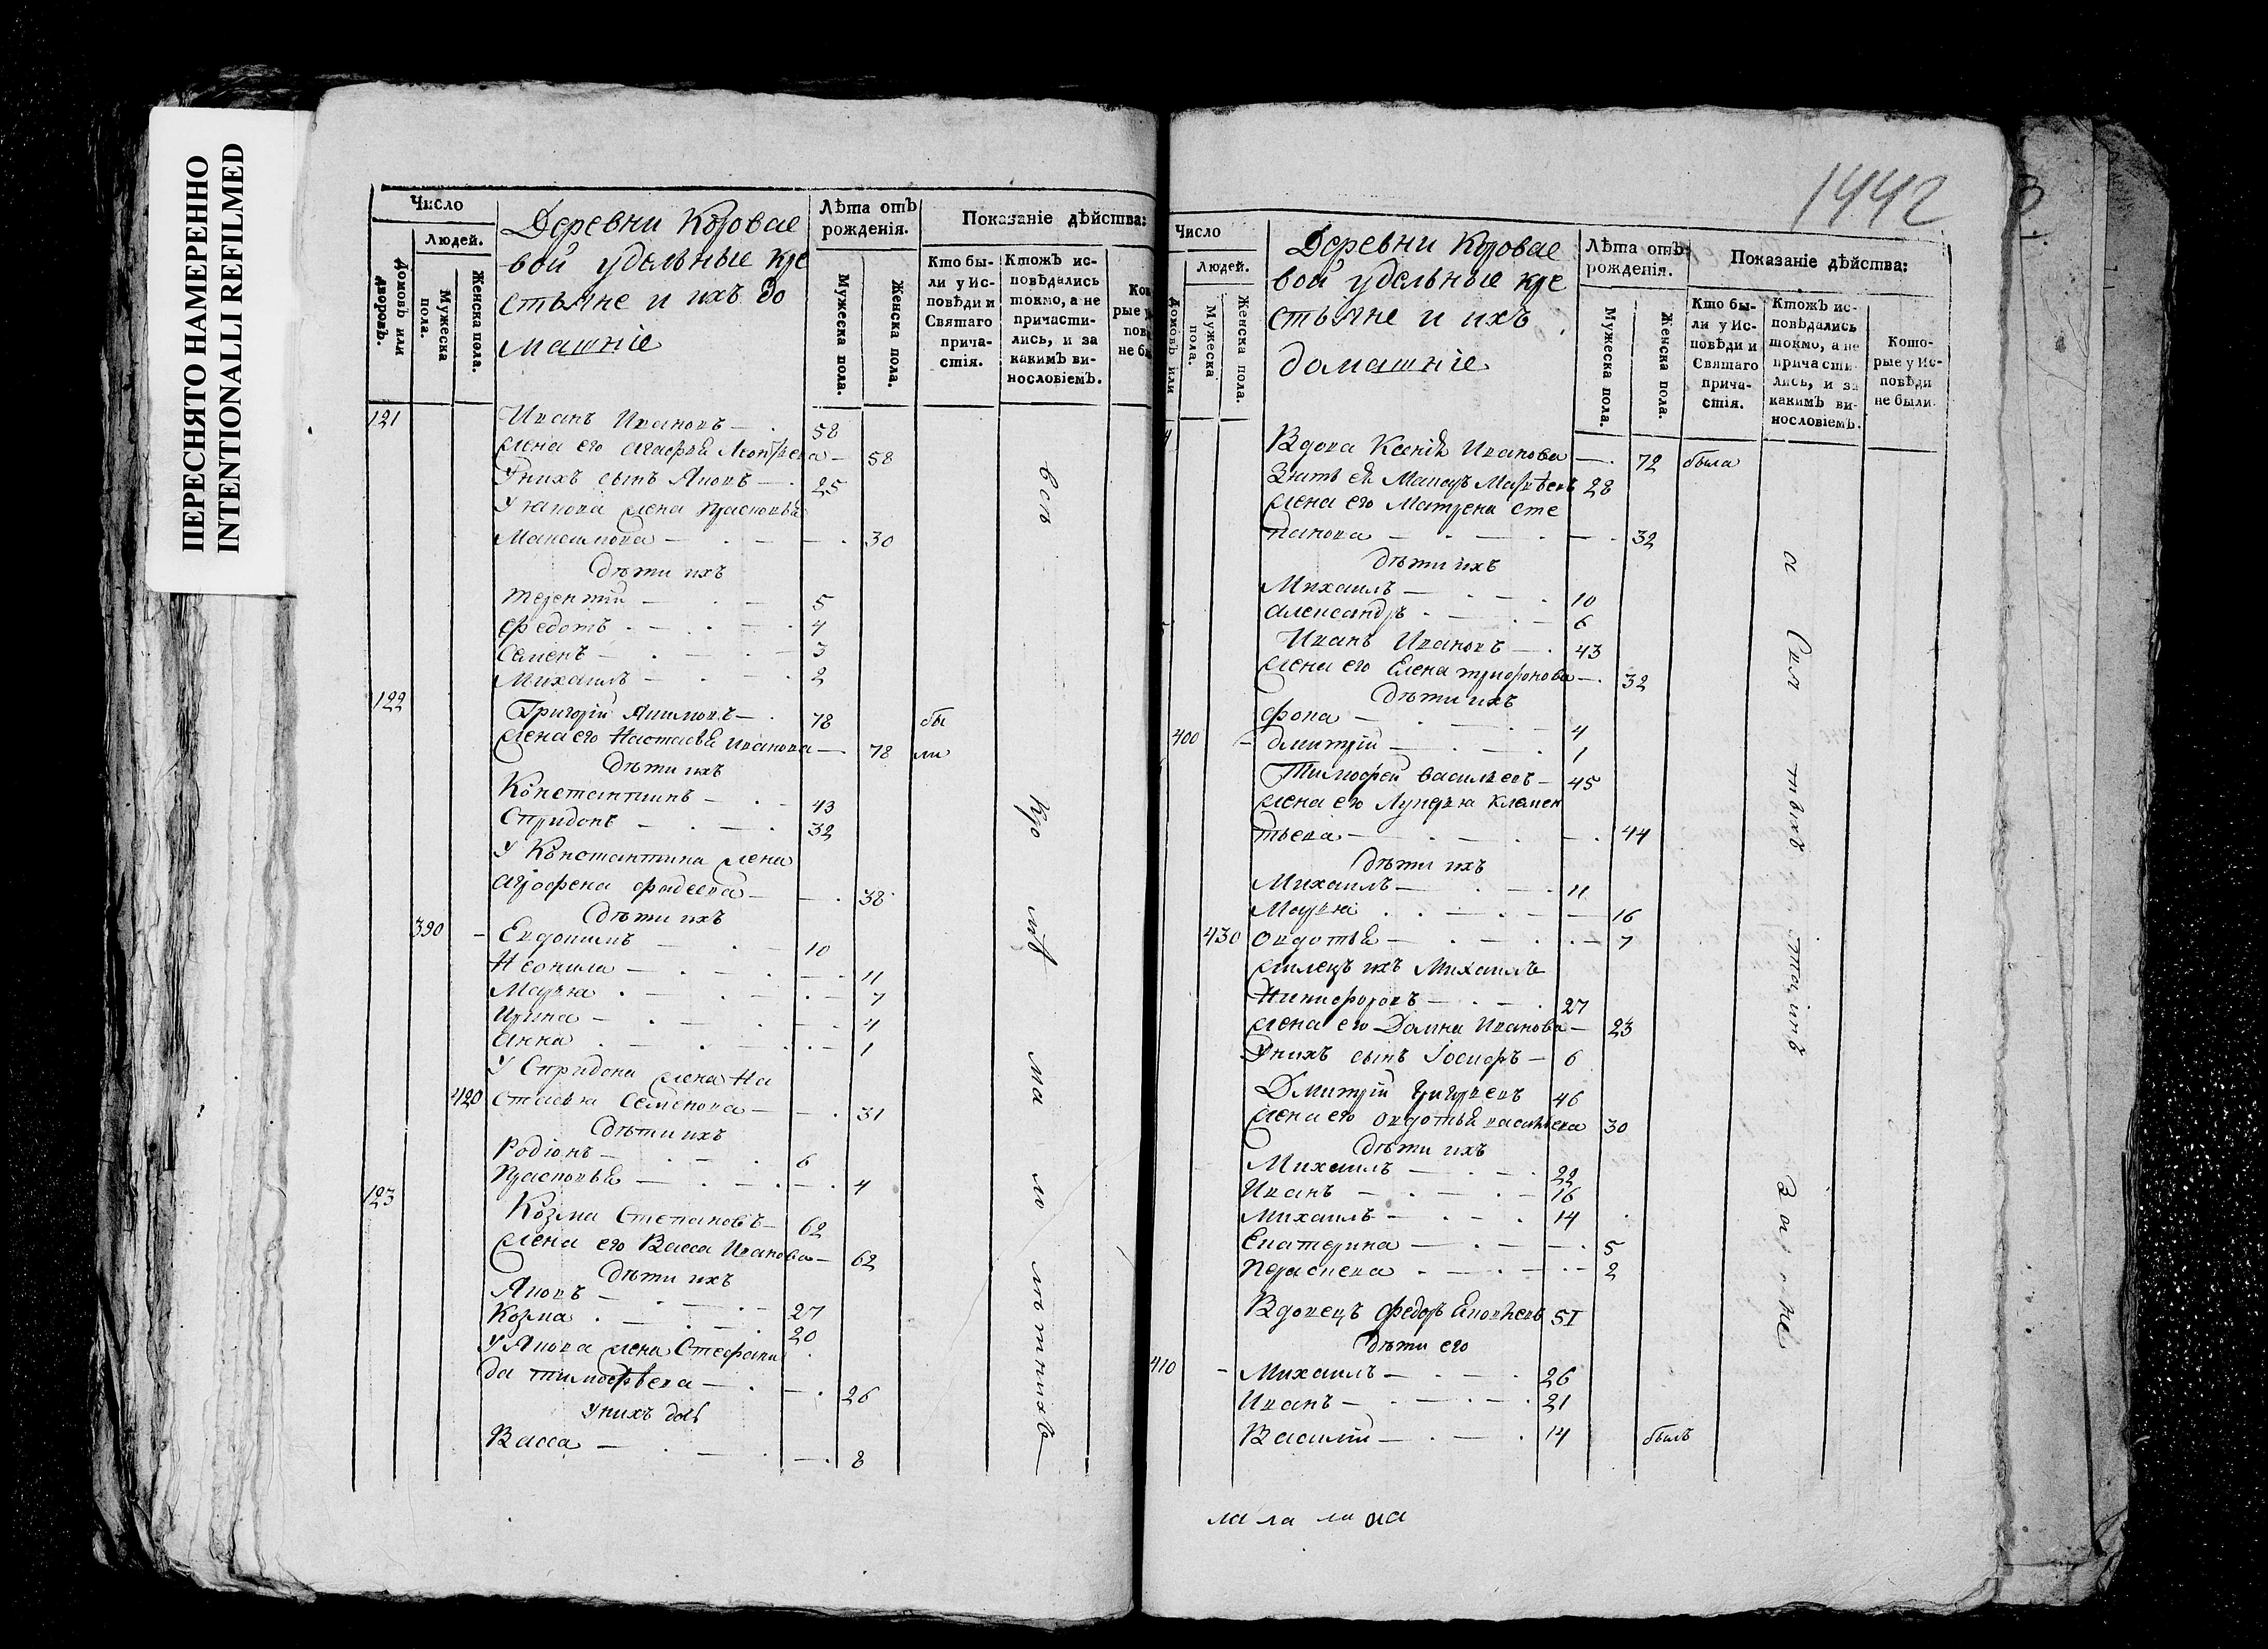 ПЕРЕСНЯТО НАМЕРЕННО
INTENTIONALLI REFILMED
Число
Людей.
Домовъ или дворовъ.
Мужеска пола.
Женска пола.
Деревни Коровае
вой удельные кре
стьяне и ихъ до
машніе
Лѣта отъ рожденія.
Мужеска пола.
Женска пола.
Показаніе дѣйства:
Кто бы-
ли у Ис-
повѣди и
Святаго
прича-
стія.
Ктожъ ис-
повѣдались
токмо, а не
причасти-
лись, и за
какимъ ви-
нословіемъ.
121 Иванъ Ивановъ — 58
жена его Агафья — 58
У нихъ сынъ Яковъ — 25
У Якова жена Прасковья
Максимова — 30
Дѣти ихъ
Терентій — 5
Федотъ — 4
Семенъ — 3
Михаилъ — 2
122 Григорій Якимовъ — 78 бы
жена его Настасья Иванова — 78 ли
Дѣти ихъ
Константинъ — 43
Спридонъ — 32
У Константина жена
Аграфена Фадеева — 38
Дѣти ихъ
390 — Евдокимъ — 10
Неонила — 11
Марья — 7
Ирина — 4
Анна — 1
У Спридона жена На
420 стасья Семенова — 31
Дѣти ихъ
Родіонъ — 6
Прасковья — 4
123 Козма Степановъ — 62
жена его Васса Иванова — 62
Дѣти ихъ
Яковъ — 27
Козма — 20
У Якова жена Стефани
да Тимофѣева — 26
У нихъ дочь
Васса — 8
всѣ
кро
мѣ
ма
ло
лѣтнихъ
1442
Число
Людей.
Домовъ или
Мужеска пола.
Женска пола.
Деревни Коровае
вой удельные кре
стьяне и ихъ
домашніе
Лѣта отъ рожденія.
Мужеска пола.
Женска пола.
Показаніе дѣйства:
Кто бы-
ли у Ис-
повѣди и
Святаго
прича-
стія.
Ктожъ ис-
повѣдались
токмо, а не
причасти-
лись, и за
какимъ ви-
нословіемъ.
Кото-
рые у Ис-
повѣди
не были.
Вдова Ксенія Иванова — 72 была
Зять ея Макаръ 28
жена его Матрена Сте
панова — 32
Дѣти ихъ
Михаилъ — 10
Александръ — 6
Иванъ Ивановъ — 43
жена его Елена Трифонова — 32
Дѣти ихъ
Фока — 4
400 — Дмитрій — 1
Тимофей Васильевъ — 45
жена его Лукерья Клемен
тьева — 44
Дѣти ихъ
Михаилъ — 11
Марья — 16
430 Овдотья — 7
ихъ Михаилъ
Никифоровъ — 27
жена его Домна Иванова — 23
У нихъ сынъ Іосифъ — 6
Дмитрій Григорьевъ 46
жена его Овдотья Васильева 30
Дѣти ихъ
Михаилъ — 22
Иванъ — 16
Михаилъ — 14
Екатерина — 5
Праскева — 2
Вдовецъ Федоръ Яковлевъ 51
Дѣти его
410 — Михаилъ — 26
Иванъ — 21
Василій — 14 былъ
а
Свя
тыхъ
ла ла ла